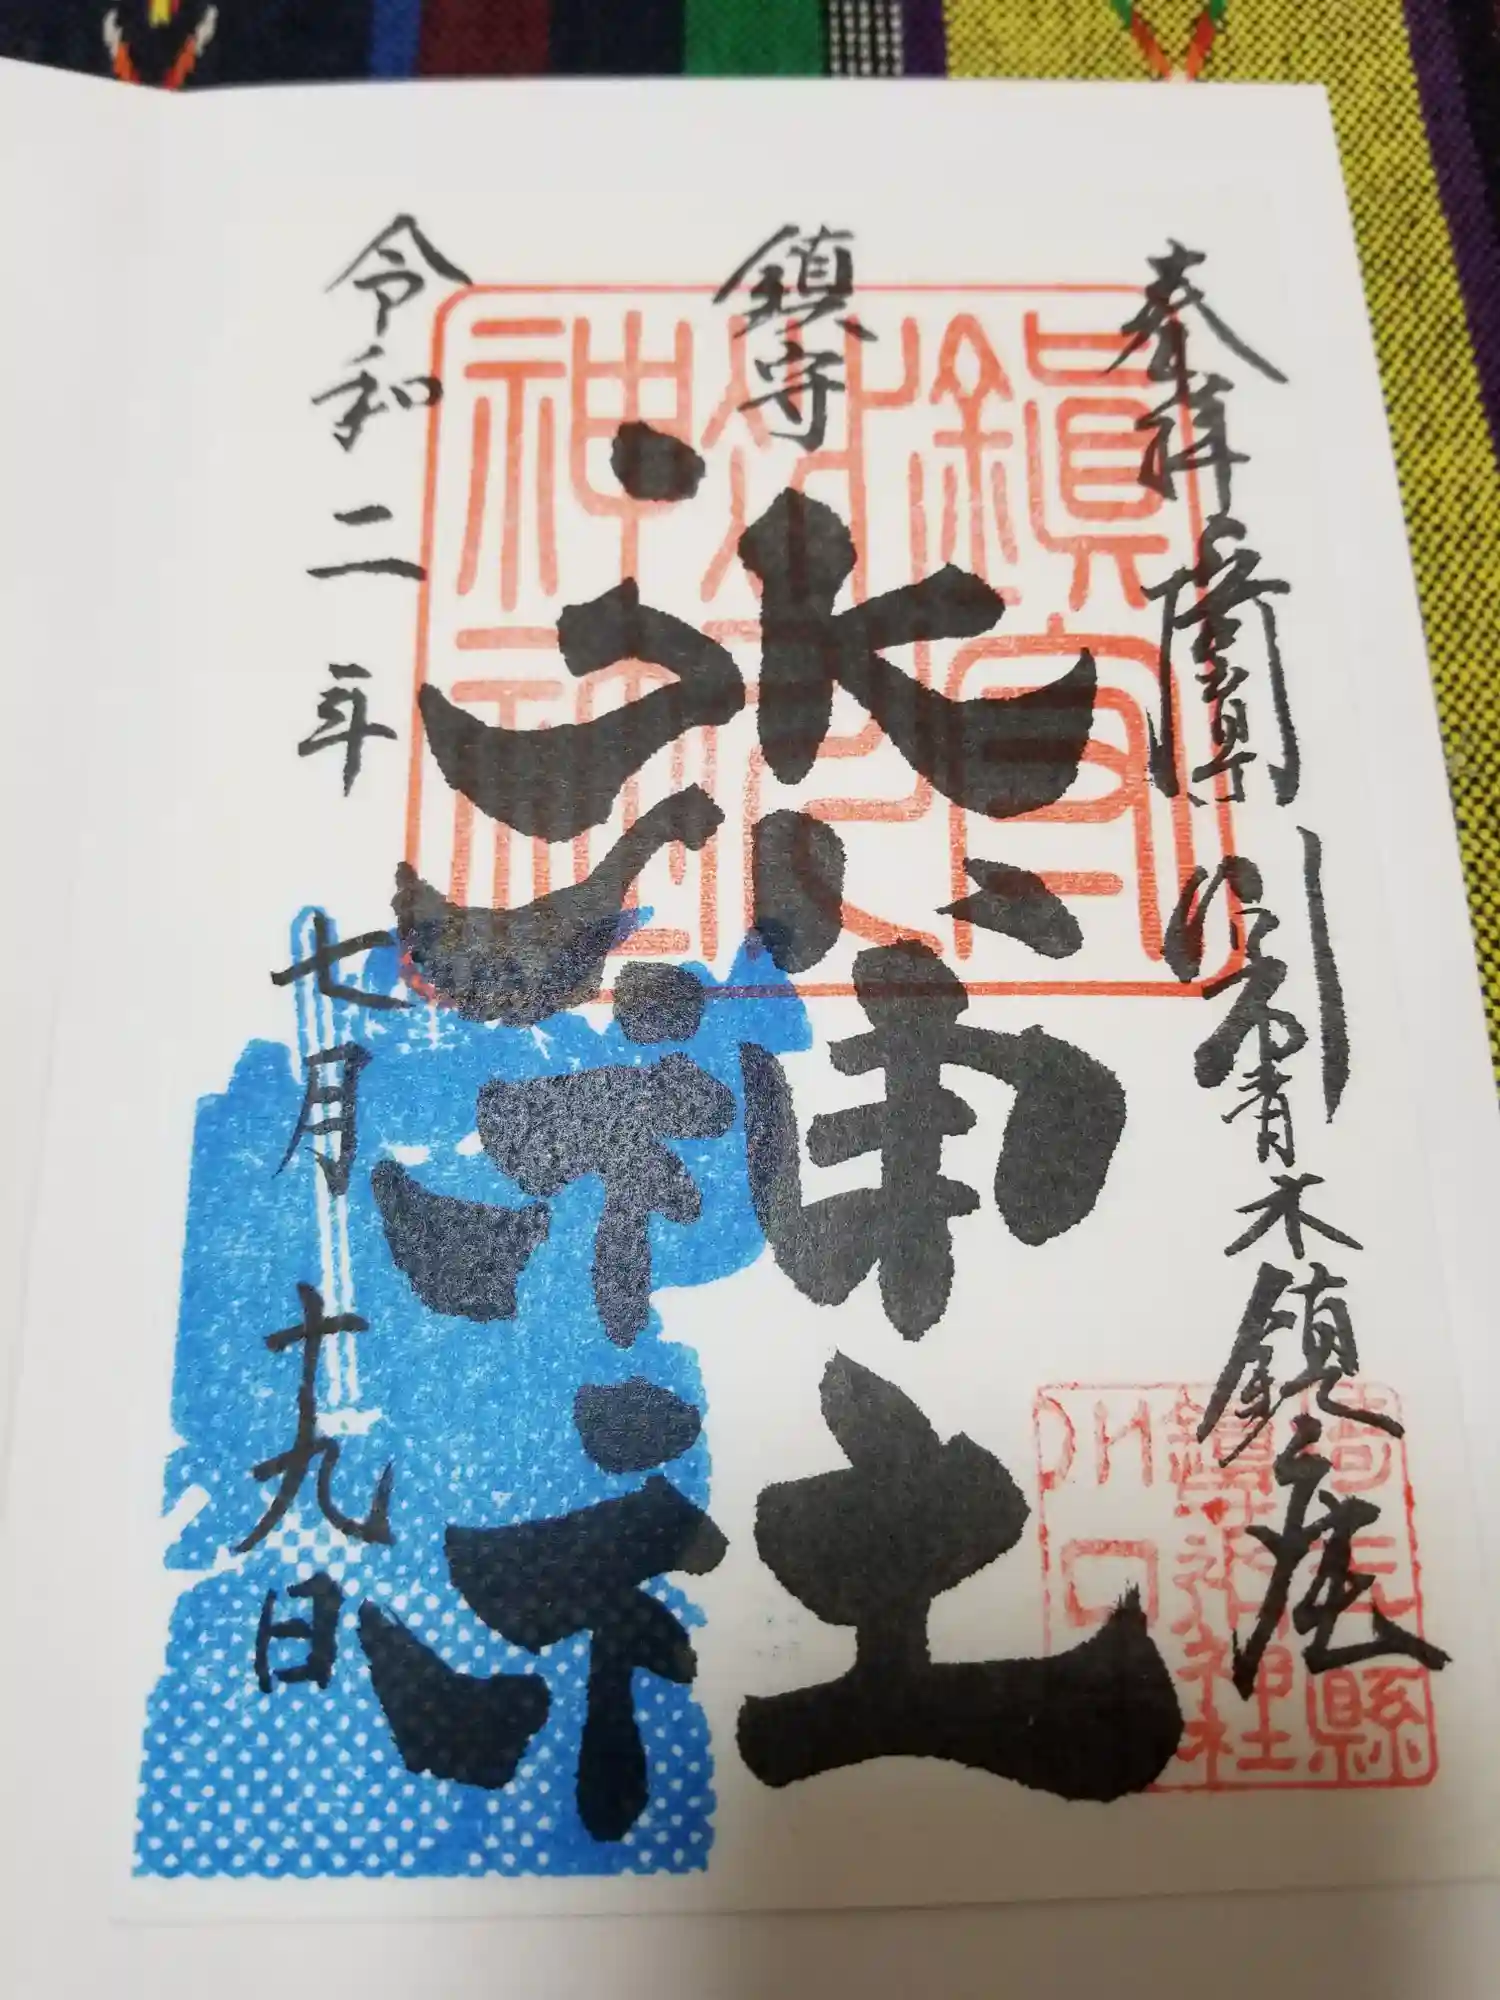 奉拝 埼玉県川口市青木鎮座
鎮守
氷川神社
令和二年 七月十九日
鎮守氷川神社
埼玉縣
鎮守氷川神社
川口